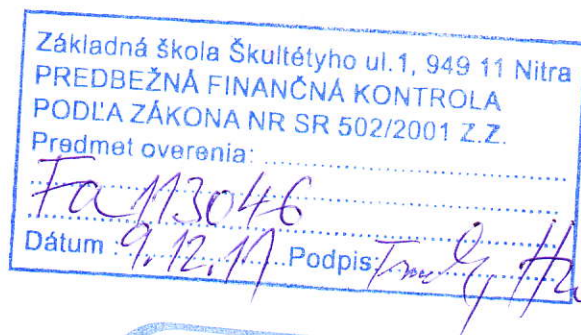 Základná škola Škultétyho ul.1, 949 11 Nitra
PREDBEŽNÁ FINANČNÁ KONTROLA
PODĽA ZÁKONA NR SR 502/2001 Z.Z.
Predmet overenia:
Fa 113046
Dátum 9.12.11 Podpis